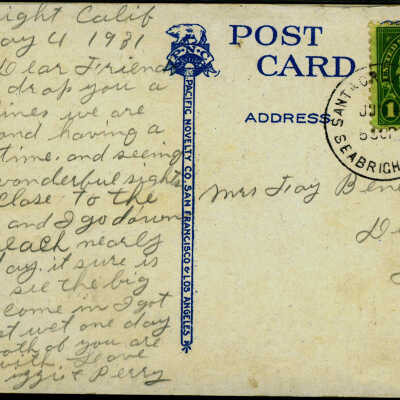 ight Calif
ay 4 1931
Dear Friend
drop you a
lines we are
and having a
time. and seeing
wonderful sights
Close to the
and I go down
each nearly
ay. it sure is
see the big
come in I got
t wet one day
both of you are
with Love
izzi & Perry
P.N.C.
PACIFIC NOVELTY CO. SAN FRANCISCO & LOS ANGELES
POST
CARD
ADDRESS
Mrs Fay Bene
De
SANTA CR
SEABRIGH
1